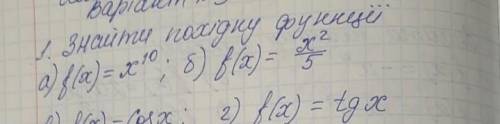 Варіант
1. Знайти похідну функції
а) f(x) = x¹⁰; б) f(x) = x²/5
в) f(x) = Cos x; г) f(x) = tg x